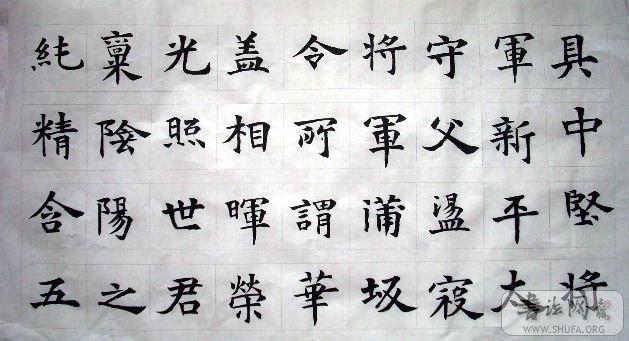 具中堅将
軍新平大
守父盪寇
将軍蒲坂
令所謂華
盖相暉榮
光照世君
稟陰陽之
純精含五
WWW.SHUFA.ORG